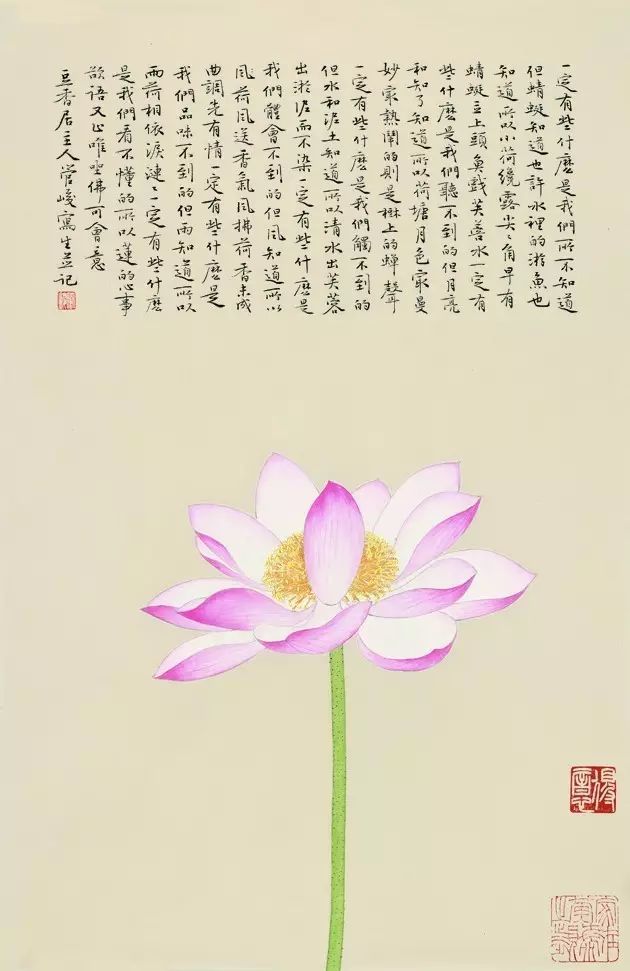 一定有些什麽是我們所不知道
但蜻蜓知道也許水裡的游魚也
知道所以小荷纔露尖尖角早有
蜻蜓立上頭魚戲芙蓉水一定有
些什麽是我們聽不到的但月亮
和知了知道所以荷塘月色寂曼
妙寂熱鬧的則是樹上的蟬聲
一定有些什麽是我們觸不到的
但水和泥土知道所以清水出芙蓉
出淤泥而不染一定有些什麽是
我們體會不到的但風知道所以
風荷風送香氣風拂荷香未成
曲調先有情一定有些什麽是
我們品味不到的但雨知道所以
雨荷相依淚漣漣一定有些什麽
是我們看不懂的所以蓮的心事
欲語又止唯坐佛可會意
豆香居主人管峻寫生並記